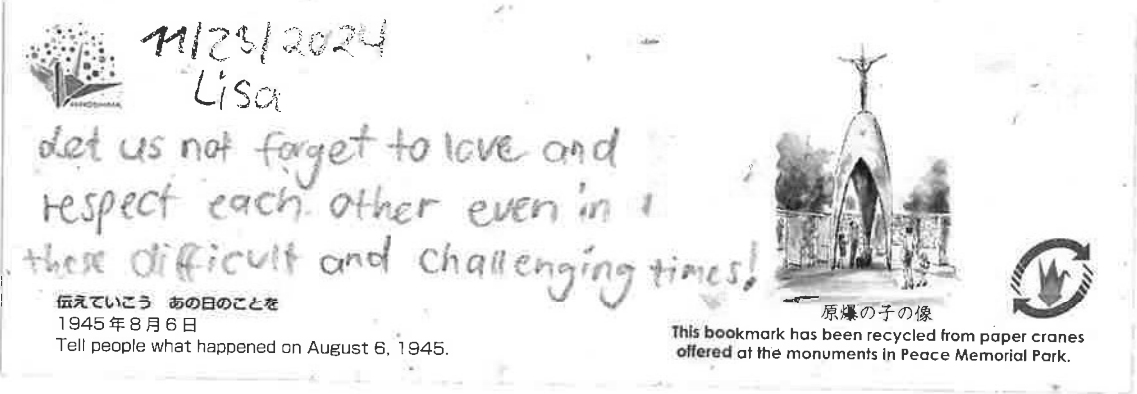 11/23/2024
Lisa
HIROSHIMA
Let us not forget to love and
respect each other even in
these difficult and challenging times!
伝えていこう　あの日のことを
1945年8月6日
Tell people what happened on August 6, 1945.
原爆の子の像
This bookmark has been recycled from paper cranes
offered at the monuments in Peace Memorial Park.